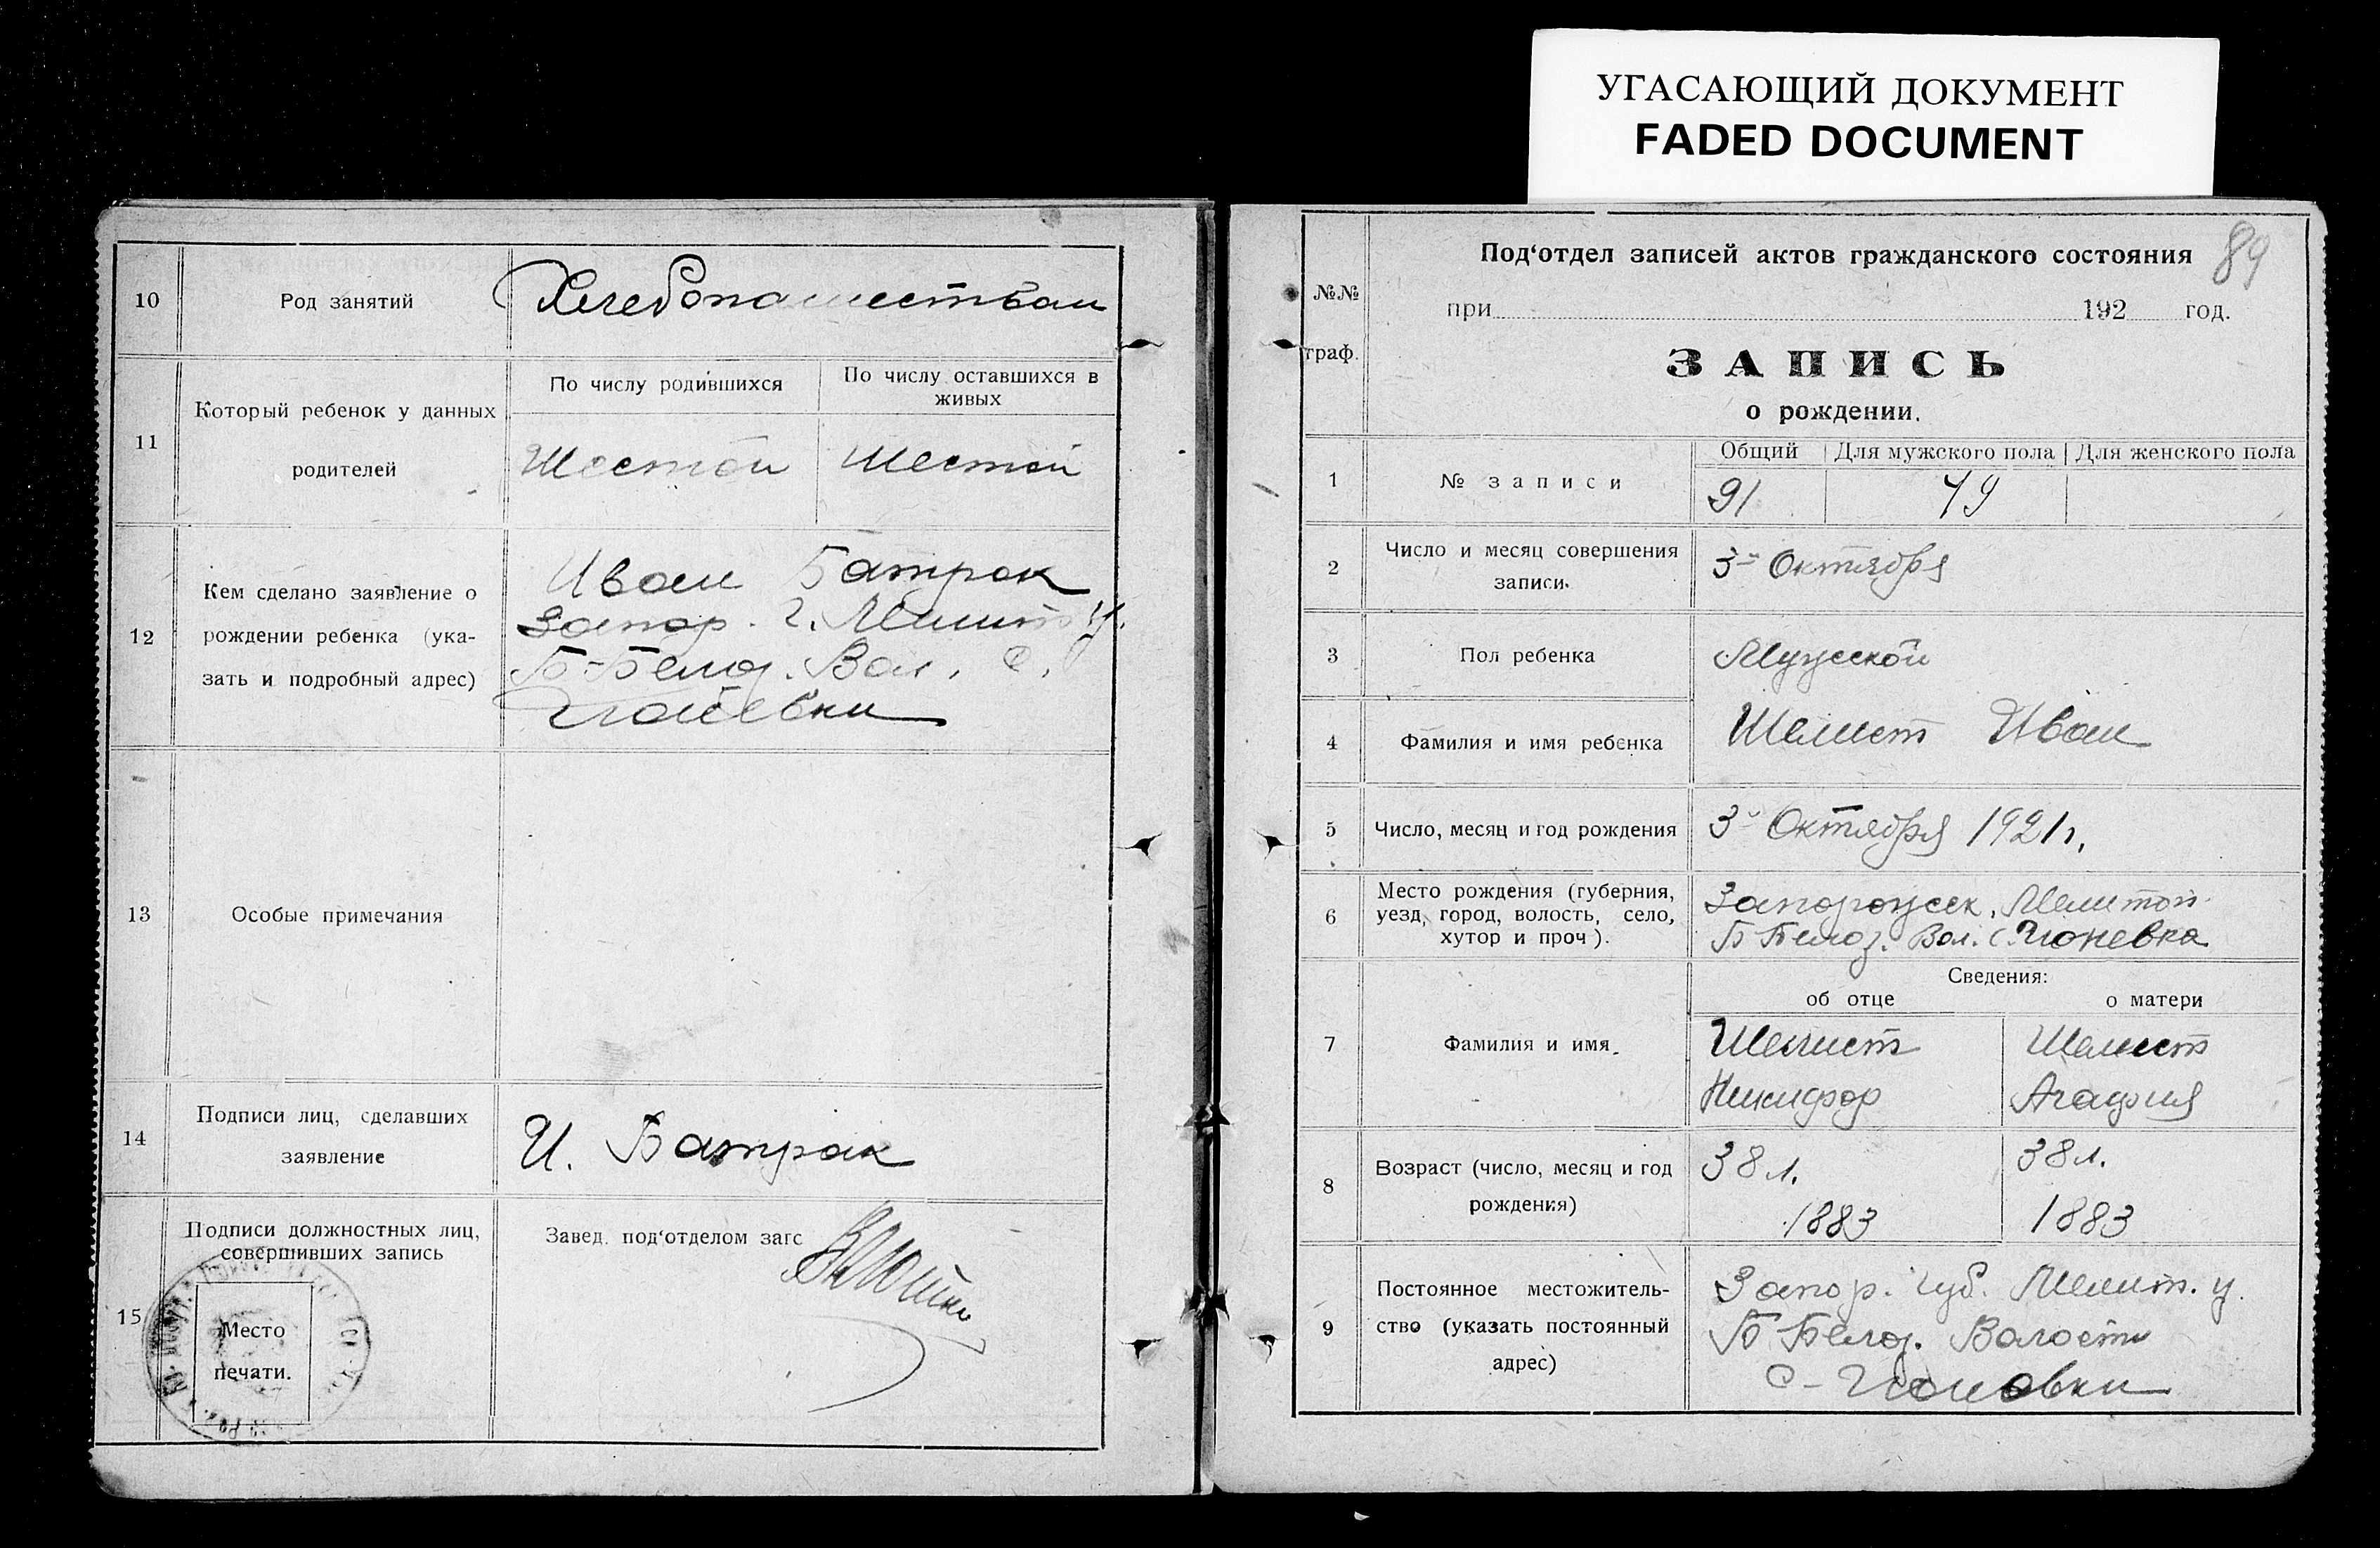 УГАСАЮЩИЙ ДОКУМЕНТ
FADED DOCUMENT
10
Род занятий
Хлебопашеством
11
Который ребенок у данных
родителей
По числу родившихся
По числу оставшихся в
живых
Шестой
Шестой
12
Кем сделано заявление о
рождении ребенка (ука-
зать и подробный адрес)
Иван Батрак
Запор. г. Мелит. у.
Б-Белоз. Вол. с.
13
Особые примечания
14
Подписи лиц, сделавших
заявление
И. Батрак
15
Подписи должностных лиц,
совершивших запись
Место
печати.
Завед. под‘отделом загс
89
№№
граф.
Под‘отдел записей актов гражданского состояния
при 192 год.
ЗАПИСЬ
о рождении.
1
№ записи
Общий Для мужского пола Для женского пола
91 49
2
Число и месяц совершения
записи.
3го Октября
3
Пол ребенка
Мужской
4
Фамилия и имя ребенка
Шелист Иван
5
Число, месяц и год рождения
3го Октября 1921 г.
6
Место рождения (губерния,
уезд, город, волость, село,
хутор и проч).
Запорожск. Мелитоп.
Б Белоз. Вол. с.
Сведения:
об отце о матери
7
Фамилия и имя.
Шелист
Никифор
Шелист
Агафия
8
Возраст (число, месяц и год
рождения)
38 л.
1883
38 л.
1883
9
Постоянное местожитель-
ство (указать постоянный
адрес)
Запор. губ. Мелит. у.
Б Белоз. Волости
с-